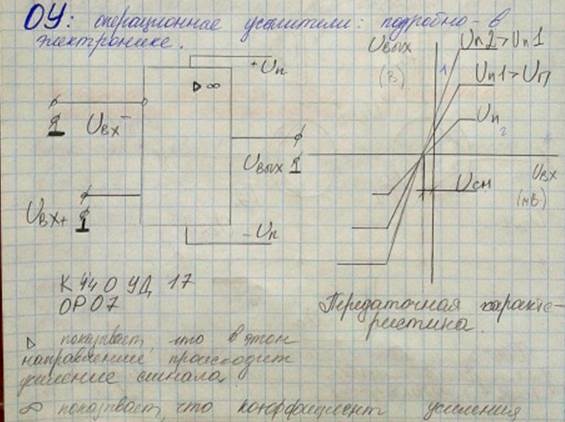 ОУ: операционные усилители: подробно - в
электронике.
+Uп
▷∞
Uвх-
Uвх+
Uвых
-Uп
Uвых
(В)
Uп2>Uп1
Uп1>Uп
Uп
Uсм
Uвх
(мВ)
К 140 УД 17
OP 07
Передаточная характе-
ристика.
▷ показывает что в этом
направлении происходит
усиление сигнала
∞ показывает, что коэффициент усиления